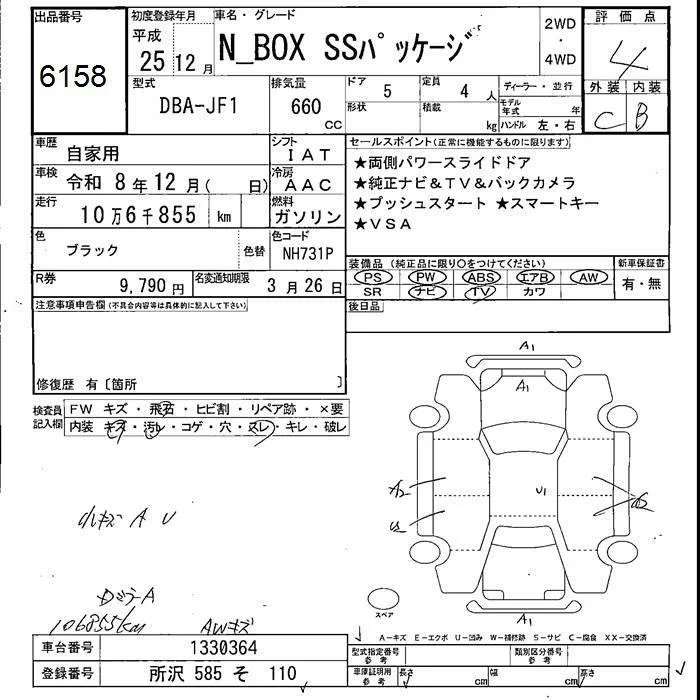 出品番号 初度登録年月 車名・グレード 2WD・4WD 評価点
6158 平成 25 12月 N_BOX SSパッケージ 4
型式 排気量 ドア 5 定員 4人 ディーラー・並行 外装 内装
DBA-JF1 660 cc 形状 積載 kg モデル年式 年 ハンドル 左・右 C B
車歴 自家用 シフト IAT セールスポイント(正常に機能するものに限ります)
車検 令和 8年12月( 日) 冷房 AAC ★両側パワースライドドア
走行 10万6千855 km 燃料 ガソリン ★純正ナビ&TV&バックカメラ
★プッシュスタート ★スマートキー
★VSA
色 ブラック 色替 色コード NH731P
装備品(純正品に限り〇をつけてください) 新車保証書
R券 9,790円 名変通知期限 3月26日 PS PW ABS エアB AW 有・無
SR ナビ TV カワ
注意事項申告欄(不具合内容等は具体的に記入して下さい) 後日品
修復歴 有〔箇所 〕
検査員記入欄 FW キズ・飛石・ヒビ割・リペア跡・×要
内装 キズ・汚レ・コゲ・穴・スレ・キレ・破レ
A1
A1
A2 U1
小キズ A U
A1
スペア
106855km AWキズ
A-キズ E-エクボ U-凹み W-補修跡 S-サビ C-腐食 XX-交換済
車台番号 1330364 型式指定番号 参考 類別区分番号 参考
登録番号 所沢 585 そ 110 車庫証明用 参考 長さ cm 幅 cm 高さ cm